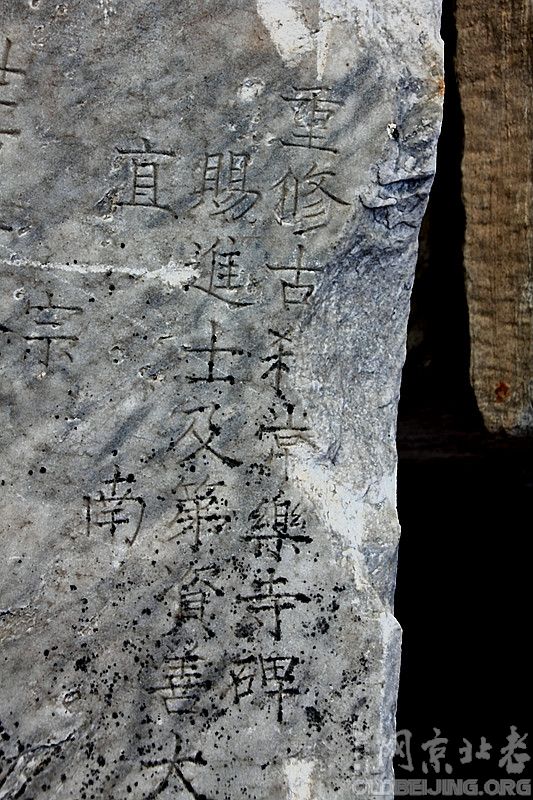 重修古刹常樂寺碑
賜進士及第資善大
直 南
宗
老北京网
OLDBEIJING.ORG